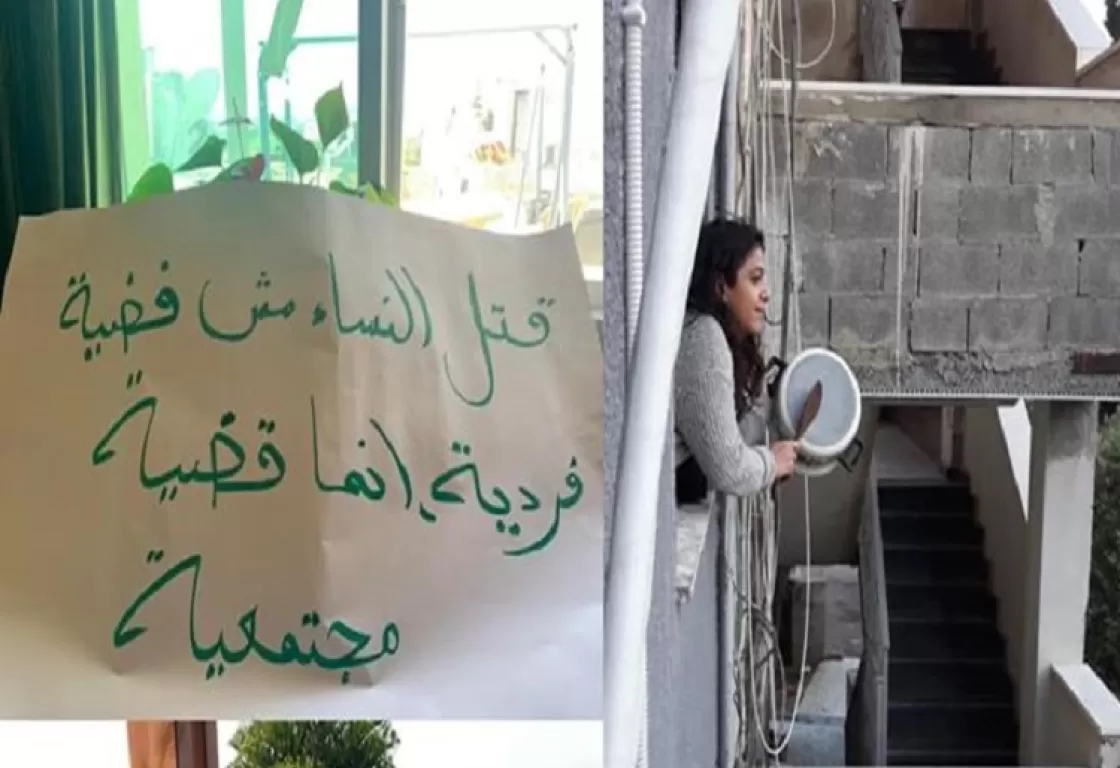 قتل النساء مش قضية
فردية، انما قضية
مجتمعية